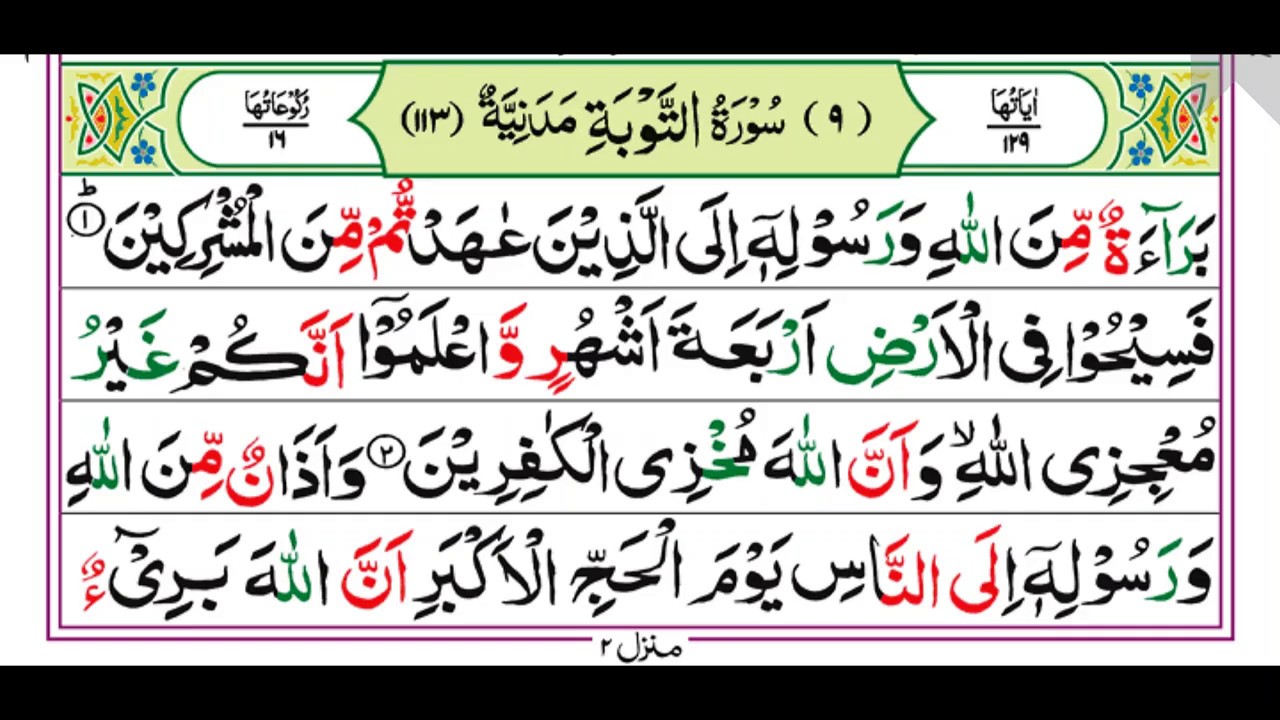 اٰيَاتُهَا ١٢٩
(٩) سُوْرَةُ التَّوْبَةِ مَدَنِيَّةٌ (١١٣)
رُكُوْعَاتُهَا ١٦
بَرَآءَةٌ مِّنَ اللّٰهِ وَرَسُوْلِهٖۤ اِلَى الَّذِيْنَ عٰهَدْتُّمْ مِّنَ الْمُشْرِكِيْنَ ؕ ١
فَسِيْحُوْا فِى الْاَرْضِ اَرْبَعَةَ اَشْهُرٍ وَّاعْلَمُوْۤا اَنَّكُمْ غَيْرُ
مُعْجِزِى اللّٰهِ ۙ وَاَنَّ اللّٰهَ مُخْزِى الْكٰفِرِيْنَ ٢ وَاَذَانٌ مِّنَ اللّٰهِ
وَرَسُوْلِهٖۤ اِلَى النَّاسِ يَوْمَ الْحَجِّ الْاَكْبَرِ اَنَّ اللّٰهَ بَرِىْٓءٌ
منزل ٢